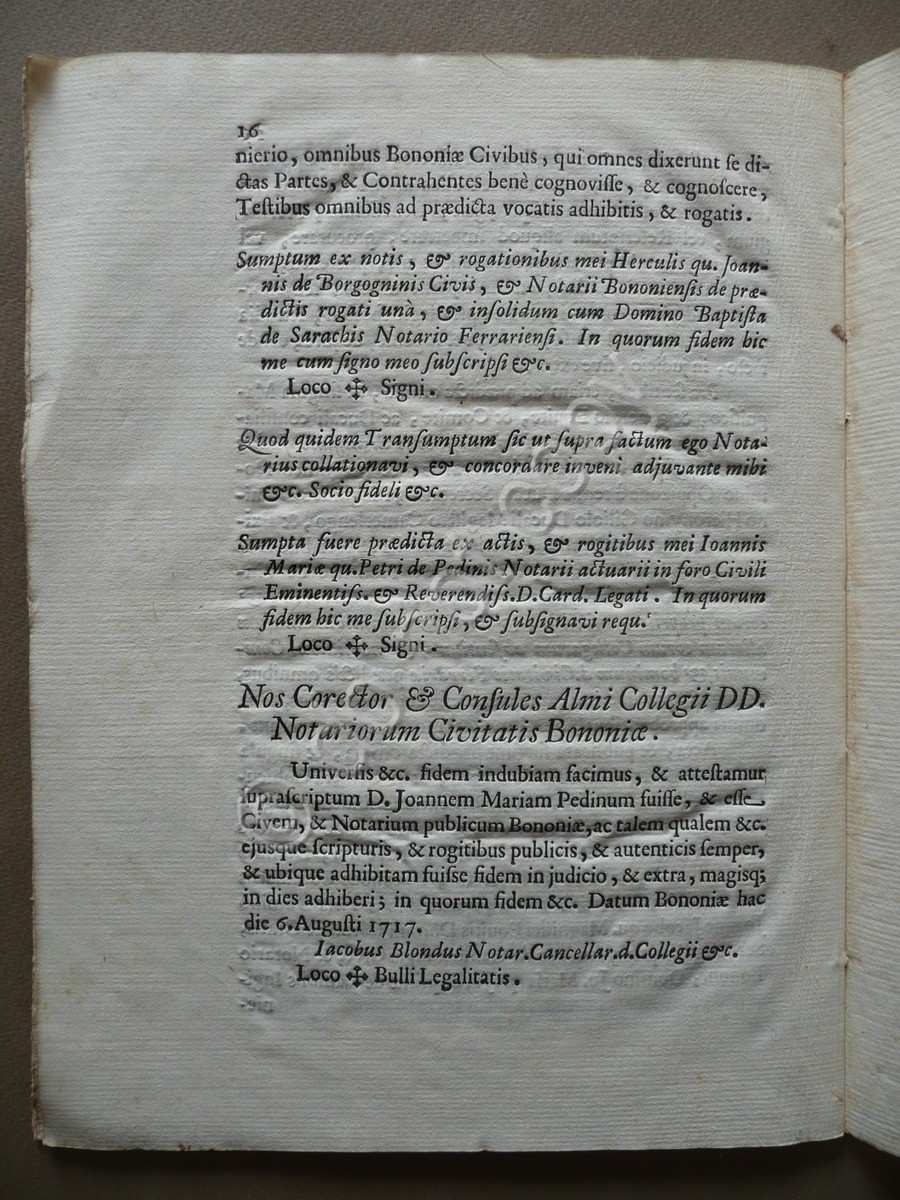 16
nierio, omnibus Bononiæ Civibus, qui omnes dixerunt ſe di-
ctas Partes, & Contrahentes benè cognoviſſe, & cognoſcere,
Teſtibus omnibus ad prædicta vocatis adhibitis, & rogatis.
Sumptum ex notis, & rogationibus mei Herculis qu. Joan-
nis de Borgogninis Civis, & Notarii Bononienſis de præ-
dictis rogati unà, & inſolidum cum Domino Baptiſta
de Sarachis Notario Ferrarienſi. In quorum fidem hic
me cum ſigno meo ſubſcripſi &c.
Loco ✠ Signi.
Quod quidem Tranſumptum ſic ut ſupra factum ego Nota-
rius collationavi, & concordare inveni adjuvante mihi
&c. Socio fideli &c.
Sumpta fuere prædicta ex actis, & rogitibus mei Ioannis
Mariæ qu. Petri de Pedinis Notarii actuarii in foro Civili
Eminentiſs. & Reverendiſs. D. Card. Legati. In quorum
fidem hic me ſubſcripſi, & ſubſignavi requ.
Loco ✠ Signi.
Nos Corector & Conſules Almi Collegii DD.
Notariorum Civitatis Bononiæ.
Univerſis &c. fidem indubiam facimus, & atteſtamur
ſupraſcriptum D. Joannem Mariam Pedinum fuiſſe, & eſſe
Civem, & Notarium publicum Bononiæ, ac talem qualem &c.
ejusque ſcripturis, & rogitibus publicis, & autenticis ſemper,
& ubique adhibitam fuiſse fidem in judicio, & extra, magisq;
in dies adhiberi; in quorum fidem &c. Datum Bononiæ hac
die 6. Auguſti 1717.
Iacobus Blondus Notar. Cancellar. d. Collegii &c.
Loco ✠ Bulli Legalitatis.